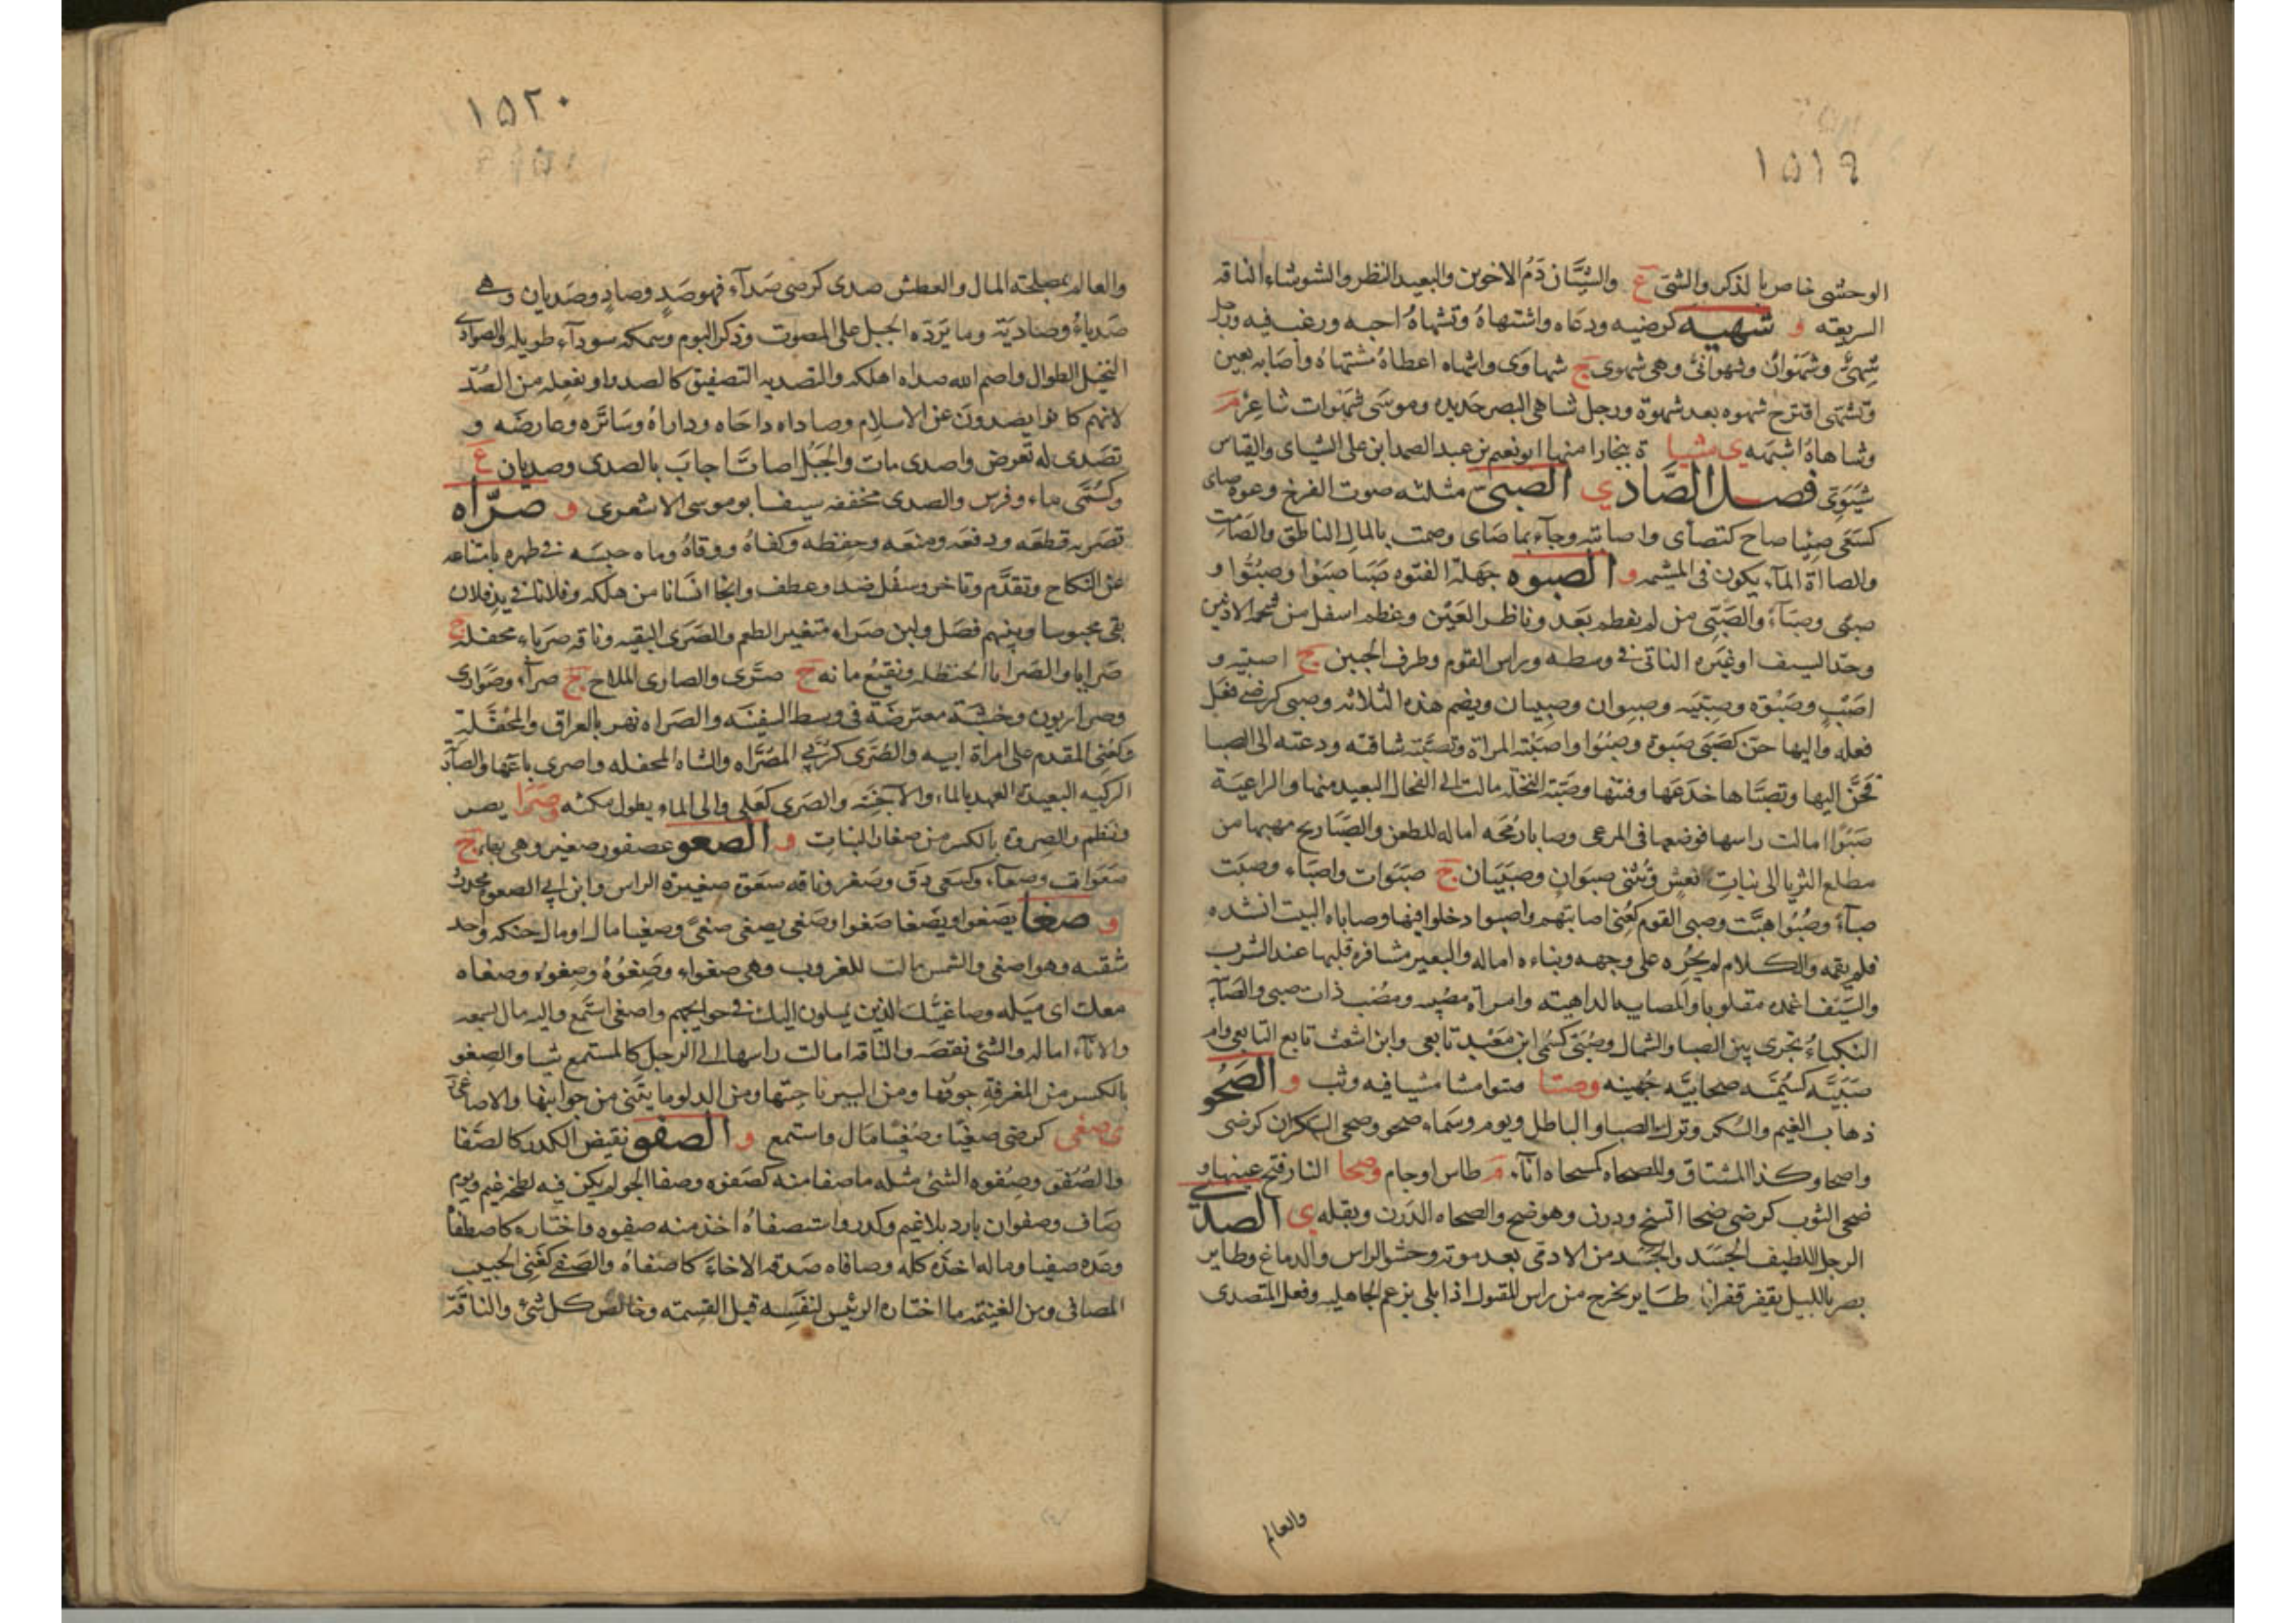 ١٥١٩
الوحشى خاص بالذكر والشتى ع والشيّان دَمُ الاخوين والبعيد النظر والشوشاء الناقه
السريعته و شهيه كرضيه ودعاه واشتهاهُ وتشهاهُ احبه ورغب فيه ورجل
شهىٌّ وشهَوانٌ وشهوانىٌّ وهى شهوى ج شهاوى واشهاه اعطاهُ مشتهاهُ واصابه بعين
وتشهى اقترح شهوه بعد شهوة ورجل شاهى البصر حديده وموسَى شهَوات شاعِرٌ م
وشاهاهُ اشبَهه ى شيا ة بخارا منها ابو نعيم بن عبد الصمد ابن على الشياى والقياس
شيَوِى فصل الصّاد ي الصئىّ مثلثه صوت الفرخ ونحوه صاى
كسَعَى صئيا صاح كتصأى واصاته وجآء بما صاى وصمت بالمال الناطق والصّامت
والصاأة المآء يكون فى المشيمه و الصبوه جهلة الفتوه صَبَا صَبوا وصُبُوّا و
صبًى وصبَآءً والصَّبِّى من لم يفطم بَعَد وناظر العَيْن وعظم اسفل من شحمه الاذنين
وحدّ السيف او غيَره الناتى فى وسطه وراس القوم وطرف الجبين ج اصبيه و
اصَبٍ وصَبْوَه وصِبْيَه وصبوان وصبيان ويضم هذه الثلاثه وصبى كرضى فعَل
فعله واليها حنّ كصَبَى صَبوة وصُبُوّا واصبَتْه المراة وتصَبَّته شاقته ودعته الى الصبا
فحَنَّ اليها وتصبّاها خدعَها وفتنها وصَبَت النخلة مالت الى الفحال البعيد منها والراعيَة
صَبُوّا امالت راسها فوضعها فى المرعى وصابا رمحَه اماله للطعن والصَّبا ريح مهبها من
مطلع الثريا الى بنات نعش وتثنى صبَوان وصبَيَان ج صبَوات واصباء وصبَت
صبآءً وصُبُوّا هبَّت وصبى القوم كعُنى اصابتهم واصبوا دخلوا فيها وصابا البيت انشده
فلم يقمه والكلام لم يُجره على وجهه وبناءه اماله والبعير مشافره قلبها عند الشرب
والسَيْف اغمده مقلوبا والمصابيه الداهيته وامراة مصبيه ومصب ذات صبى والصَّابيه
النكباءُ تجرى بين الصبا والشمال وصُبَى كسُمى ابن مَعْبَد تابعى وابن اشعث تابع التابعى وام
صبَيَّه كسُمَيَّه صحابيَّه جُهينه وصتا صتوا مشا مشيا فيه وثب و الصَّحو
ذهاب الغيم والسُكر وترك الصبا والباطل ويوم وسَماء صحو وصحى السكران كرضى
واصحا وكذا المشتاق والمصحاه كمسحاه انآء م طاس او جام وصحا النار فتح عينها و
ضحى الثوب كرضى ضحا اتسخ ودرن وهو ضح والصحاه الدَرن وبقله ى الصدى
الرجل اللطيف الجسَد والجسَد من الادمى بعد موته وحشو الراس والدماغ وطاير
يصر بالليل يقفز قفزانا طاير يخرج من راس المقتول اذا بلى بزعم الجاهليه وفعل المتصدى
والعالم
١٥٢٠
والعالم بمصلحته المال والعطش صدى كرضى صَدآء فهو صَدٍ وصادٍ وصَديان وهى
صَدياءُ وصَاديَة وما يَردّه الجبل على المصوت وذكر البوم وسمكه سودآء طويله والصوادى
النخيل الطوال واصم الله صداه اهلكه والتصديه التصفيق كالصد او تفعله من الصُدّ
لانهم كانوا يصدون عن الاسلام وصاداه داجَاه وداراهُ وسَاتَره وعارضَه و
تصَدى له تعرض واصدى مات والجَبَل اصاتا جابَ بالصدى وصديان ع
وكسُمَّى ماء وفرس والصدى مخففه سيف ابو موسى الاشعرى و صرّاه
تصَريه قطعَه ودفعَه ومنعَه وحفظه وكفاهُ ووقاهُ وماه حبسَه فى ظهره بامتناعه
عن النكاح وتقدَّم وتاخر وسفُل ضد وعطف وانجا انسَانا من هلكه وفلان فى يد فلان
بقى محبوسا وبينهم فصَل ولبن صَراء متغير الطعم والصَرَى البقيه وناقه صرياء محفله ج
صَرايا والصرايا الحنظله ونقيعُ مائه ج صرَّى والصارى الملاح ج صرآء وصوارى
وصراريون وخشبَة معترضَة فى وسط السفينَه والصَراه نهر بالعراق والمُحَفَّلة
وكعُنى المقدم على امراة ابيه والصُرَى كرُبَى المصَرَّاه والشاه المحفله واصرى باعَها والصآريه
الركيه البعيدة العهد بالماء والآجنَه والصَرى كعَلى والى الماء يطول مكثه وصَرا يصر
ونظم والصِروة بالكسر من صغار النبات و الصعو عصفور صغير وهى بهاء ج
صعَوات وصعآء وكسَعى دق وصغر وناقه سعَوة صغيرة الراس وابن ابى الصعو محدث
و صغا يَصغوا ويَصْغا صَغوا وصَغى يصغى صغىً وصغيا مال او مال حنكه واحد
شقيه وهو اصغى والشمس مالت للغروب وهى صغواء وصَغوُهُ وصِغوه وصغاه
معك اى ميَله وصاغيَتك الذين يميلون اليك فى حوايجهم واصغى استمع واليه مال بسمعه
والاناء اماله والشئ نقصَه والناقه امالت راسها الى الرجل كالمستمع شيا والصِغو
بالكسر من المغرفة جوفها ومن البير ناحيَتها ومن الدلو ما يثَنى من جوانبها والاصاغى ة
ى صغى كرضى صغيًا وصُغيًا مَال واستمع و الصفو نقيض الكدر كالصَّفا
والصُفوّ وصِفوه الشئ مثله ما صفا منه كصَفوه وصفا الجو لم يكن فيه لطخ غيم ويوم
صَاف وصفوان بارد بلا غيم وكدر واستصفاهُ اخذ منه صفوه واختاره كاصطفاهُ
وعَده صفيا وماله اخذه كله وصافاه صَدقه الاخاءَ كاصفاهُ والصَفى كغنى الحبيب
المصافى ومن الغنيمَه ما اختاره الرئيس لنفسِه قبل القسِمَه وخالص كل شئ والناقة